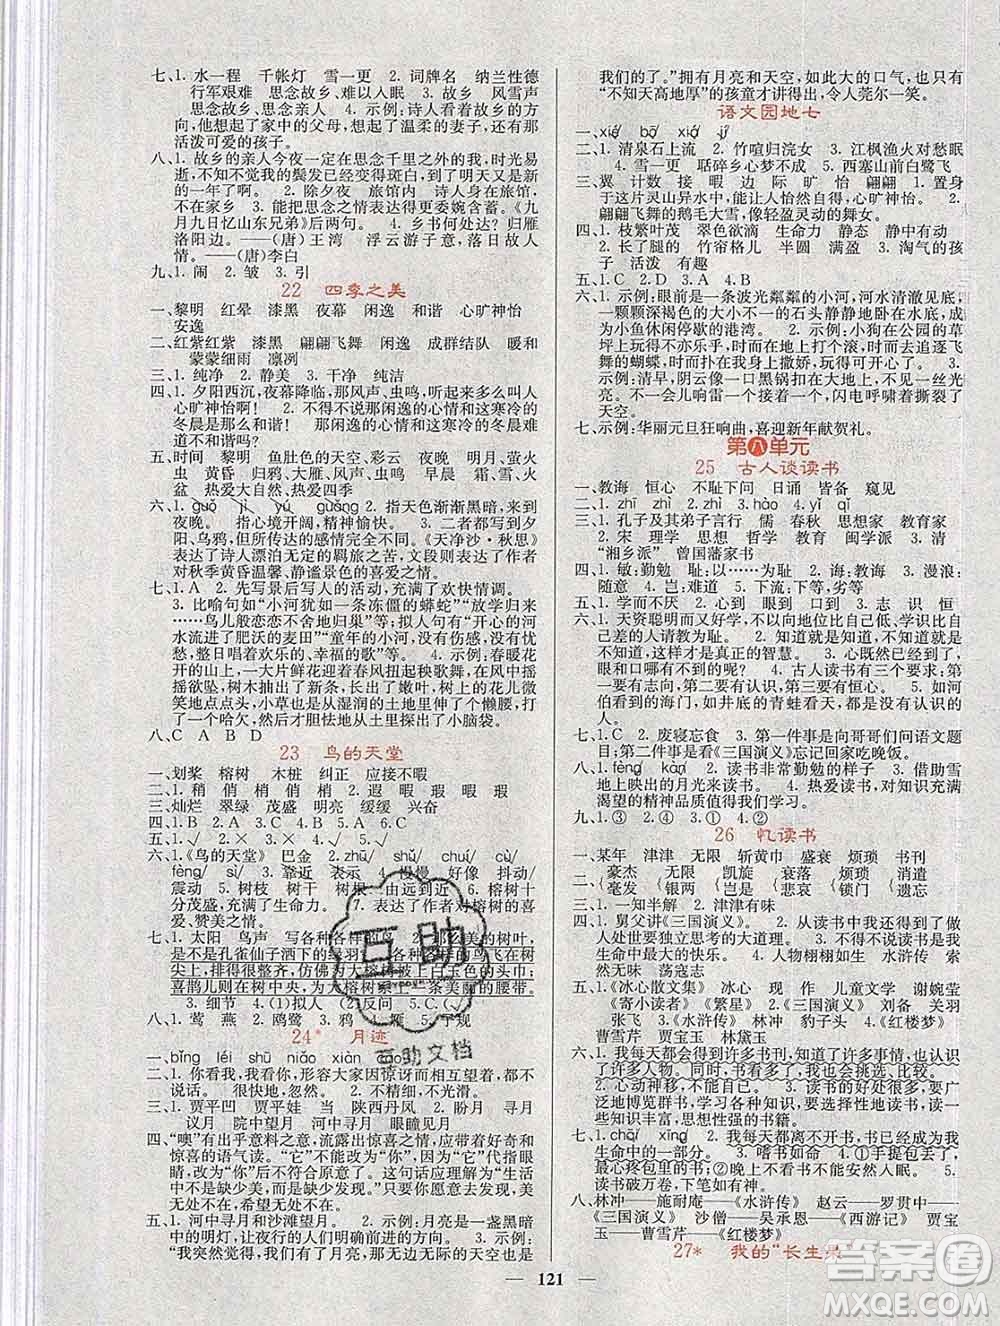 七、1. 水一程 千帐灯 雪一更 2. 词牌名 纳兰性德
行军艰难 思念故乡、难以入眠 3. 故乡 风雪声
思念故乡、思念亲人 4. 示例:诗人看着故乡的方
向,他仿佛看到了家中的父母,想起了温柔的妻子,还有那
活泼可爱的孩子。
八、1. 故乡的亲人今夜一定在思念千里之外的我,时光易
逝,不知不觉我的鬓发已经斑白,到了明天又是新
的一年了。 2. 除夕夜 旅馆内 诗人身在旅馆,
不在家乡 3. 能把思念之情表达得更委婉含蓄。《九
月九日忆山东兄弟》后两句。 4. 乡书何处达?归雁
洛阳边。——(唐)王湾 浮云游子意,落日故人
情。——(唐)李白
九、1. 闹 2. 皱 3. 引
22 四季之美
一、黎明 红晕 漆黑 夜幕 闲逸 和谐 心旷神怡
安逸
二、红紫红紫 漆黑 翩翩飞舞 闲逸 成群结队 暖和
蒙蒙细雨 凛冽
三、1. 纯净 2. 静美 3. 干净 纯洁
四、1. 夕阳西沉,夜幕降临,那风声、虫鸣,听起来多么叫人
心旷神怡啊! 2. 不得不说那闲逸的心情和这寒冷的
冬晨是那么和谐! 3. 闲逸的心情和这寒冷的冬晨难
道不和谐吗?
五、时间 黎明 鱼肚色的天空、彩云 夜晚 明月、萤火
虫 黄昏 乌鸦、大雁、风声、虫鸣 早晨 炭火、火
盆 热爱大自然、热爱四季
六、1. guǒ jī yú guāng 2. 指天色渐渐黑暗,来到
夜晚。 指心境开阔,精神愉快。 3. 同样都写到夕
阳、乌鸦,但所传达的感情完全不同。《天净沙·秋思》
表达了诗人漂泊无定的羁旅之情,文段则表达了作者
对秋天黄昏温馨、静谧景色的喜爱之情。
七、1. A 2. 先写景后写人的活动,表达了欢快情调。
3. 比喻句如“小河犹如一条冻僵的蟒蛇”“放学归来,
鸟儿般恋恋不舍地归巢”等;拟人句如“开心的河
水流进了肥沃的麦田”“童年的小河,没有悲伤、忧
愁,整日唱着欢乐的、幸福的歌”等。 4. 示例:春暖花
开的山上,一大片鲜花迎着春风扭起秧歌舞,在风中摇
摇欲坠,树木抽出了新条,长出了嫩叶,树上的花儿星星
点点点缀,小草也是从湿润的大地母亲里伸个懒腰,
打了一个哈欠,然后才胆怯地从土里探出了小脑袋。
八、C A B D
23 鸟的天堂
一、划桨 榕树 木桩 纠正 应接不暇
二、1. 稍 俏 梢 悄 2. 遐 暇 瑕 暇 暇
三、灿烂 翠绿 茂盛 明亮 缓缓 兴奋
四、1. B 2. A 3. C 4. B
五、1. √ 2. × 3. × 4. √ 5. √
六、1. 《鸟的天堂》 巴金 2. zhū shǔ chuí cù
fèng shù 3. 靠近 表示 4. 慢慢 好像 抖动
5. 树枝 树根 树叶 6. 表达了大榕树十
分茂盛,充满了生命力。 7. 表达了作者对榕树的喜
爱、赞美之情。
七、1. 太阳 鸟声 写各种各样的鸟 2. 那么美的树叶,
是不是孔雀仙子洒下的绿羽 各种各样的鸟飞在树
尖上,排得很整齐,仿佛为大榕树戴上白玉色的头巾;
喜鹊儿则在树中央,为大榕树系上一条美丽的腰带。
3. 细节 4. (1)拟人 (2)反问 5. C
八、1. 莺 燕 2. 鸥鹭 3. 鸦 4. 雁 5. 子规
24* 月迹
一、bǐng léi shū niǎo xiàn cáo
二、1. 你看我,我看你,形容大家因惊讶而相互望着,都不
说话。 很快地,忽然。 2. 不精细,不光滑。
三、1. 贾平凹 贾平娃 当 陕西丹凤 2. 盼月 寻月
议月 院中望月 河中寻月 眼瞳见月
四、“噢”有出乎意料之意,流露出惊喜之情,应带着好奇和
惊喜的语气读。“它”不能改为“你”,因为“它”代指
眼睛,改为“你”后不符合原意了。这句话应理解为“生活
中不是缺少美,而是缺少发现。”只要你愿意发现,美
无处不在,希望无处不在。
五、1. 河中寻月和沙滩望月。 2. 示例:月亮是一盏黑暗
中的明灯,让夜行的人们明确前进的方向。 3. 示例:
“我突然觉得,我们有了月亮,那无边无际的天空也是
我们的了。”拥有月亮和天空,如此大的口气,也只有
“不知天高地厚”的孩童才讲得出,令人莞尔一笑。
语文园地七
一、xié bō xié jí
二、1. 清泉石上流 2. 竹喧归浣女 3. 江枫渔火对愁眠
4. 风一更 聒碎乡心梦不成 5. 西塞山前白鹭飞
三、翼 计数 接 暇 边 际 旷 怡 翩翩 1. 置身
于这灵山异水中,真让人心旷神怡,流连忘返。 2.
翩翩飞舞的鹅毛大雪,像轻盈灵动的舞女。
四、1. 枝繁叶茂 翠色欲滴 生命力 静态 静中有动
2. 长了腿的 竹帘格门 半圆 满盈 3. 淘气的孩
子 活泼 有趣
五、1. C 2. D 3. A 4. B
六、1. 示例:眼前是一条波光粼粼的小河,河水清澈见底,
一颗颗颜色深褐的大小不一的石头静静地卧在水底,成
为小鱼休闲停歇的港湾。 2. 示例:小狗在公园的草
坪上玩得不亦乐乎,时而打个滚,时而去追逐飞
舞的蝴蝶,时而在我身上撒娇,玩得可开心了。 3.
示例:清早,阴云像一口黑锅扣在大地上,不见一丝亮
光。不一会儿电闪雷鸣,闪电像锋利的手撕裂了
天空。
七、示例:华丽元旦狂响曲,喜迎新年献贺礼。
第八单元
25 古人谈读书
一、教诲 恒心 不耻下问 日诵 皆备 窥见
二、1. zhī zhì 2. zhī 3. hào 4. yǐ qī
三、1. 孔子及其弟子言行 儒 春秋 思想家 教育家
2. 宋 理学 思想 哲学 教育 闽学派 3. 清
“湘乡派” 曾国藩家书
四、1. 敏:勤勉 耻:以……为耻 2. 诲:教诲 3. 漫浪:
随意 4. 岂:难道 5. 下流:下等,劣等
五、1. 学而不厌 2. 心到 眼到 口到 3. 志 识 恒
六、1. 天资聪明而又好学,不以向地位比自己低、学识比自
己差的人请教为耻。 2. 知道就是知道,不知道就是
不知道,这样才是真正的智慧。 3. 心既然已经到了,
眼和口哪有不到的呢? 4. 古人读书有三个要求:第一
要有志向,第二要有认识,第三要有恒心。 5. 如河
伯看到的海门,如井底的青蛙看天,都没有什么有
见识。
七、1. C 2. 废寝忘食 3. 第一件事是向哥哥们问语文题
目;第二件事是看《三国演义》忘记回家吃晚饭。
八、1. fèng kàn 2. 读书非常勤勉的样子 3. 借助雪
地上映出的月光来读书。 4. 热爱读书、对知识充满
渴望的精神品质值得我们学习。
九、1. ③ 2. ④ 3. ① 4. ②
26 忆读书
一、某年 津津 无限 斩黄巾 盛衰 烦琐 书刊
二、豪杰 无限 凯旋 衰落 烦琐
毫发 银两 岂是 悲哀 锁住
三、1. 一知半解 2. 津津有味
四、1. 舅父讲《三国演义》。 2. 从读书中我还得到了做
人处世要独立思考的大道理。 3. 我永远感到读书
是我生命中最大的快乐。 4. 人物栩栩如生 索然
无味 荡寇志
五、1. 《冰心散文集》 冰心 现 作 儿童文学 谢婉莹
《寄小读者》《繁星》 2. 《三国演义》 刘备 关羽
张飞 《水浒传》 林冲 豹子头 3. 《红楼梦》
曹雪芹 贾宝玉 林黛玉
六、1. 我每天都会阅读许多书刊,知道了许多事情,也认
识了许多人物。 看的书多了,我也会挑选、比较。
2. 心动神移 不能自已 3. 示例:读书可以使我们广
泛地博览群书、提高自我。 4. 示例:多读一些
知识丰富、思想性强的书籍。
七、1. chāi xīng 2. 我每天都离不开书,书成为我生
命中的一部分。 3. 嗜书如命 4. ①手提包丢了,
最心疼包里的书;②晚上不看书,就无法安然入眠。 5.
读书破万卷,下笔如有神。
八、林冲——施耐庵——《水浒传》 赵云——罗贯中——
《三国演义》 沙僧——吴承恩——《西游记》 贾宝
玉——曹雪芹——《红楼梦》
27* 我的“长生果”
— 121 —
互助
互助文档
答案圈
MXQE.COM